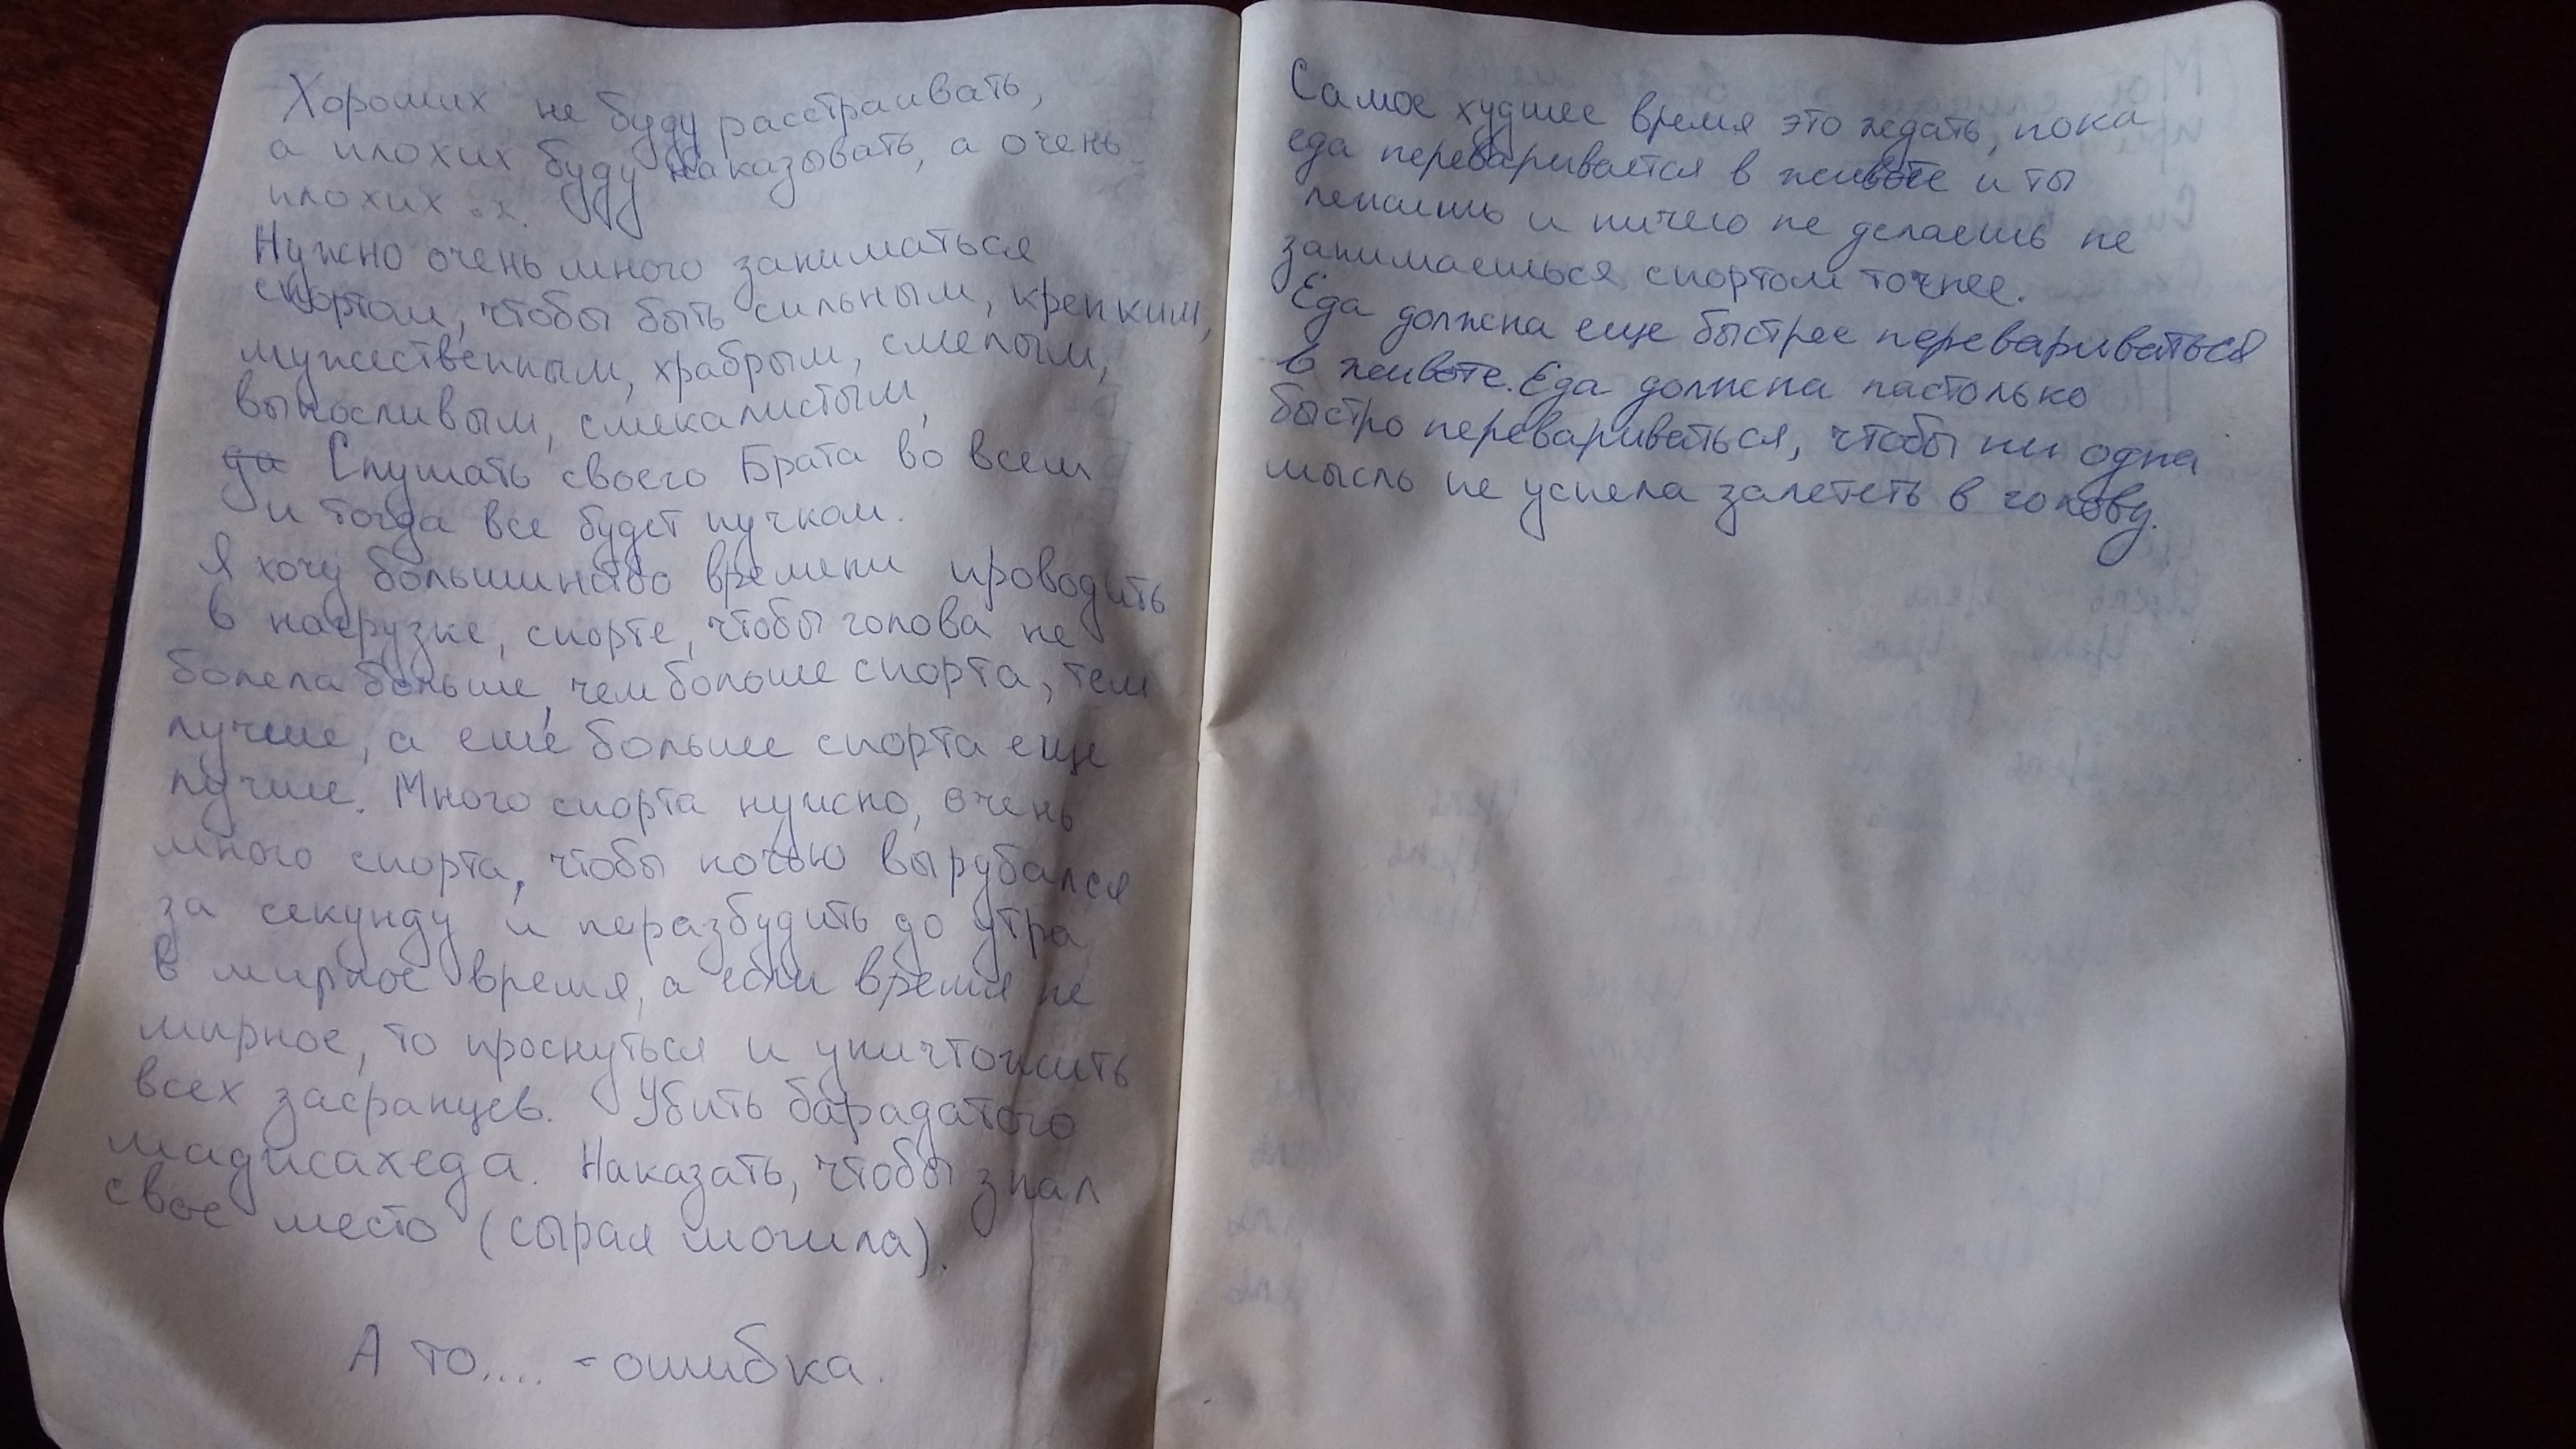 Хороших не буду расстраивать,
а плохих буду наказывать, а очень
плохих ..х.
Нужно очень много заниматься
спортом, чтобы быть сильным, крепким,
мужественным, храбрым, смелым,
выносливым, смекалистым,
да Слушать своего Брата во всем
и тогда все будет пучком.
Я хочу большинство времени проводить
в нагрузке, спорте, чтобы голова не
болела больше, чем больше спорта, тем
лучше, а еще больше спорта еще
лучше. Много спорта нужно, очень
много спорта, чтобы ночью вырубался
за секунду и неразбудить до утра
в мирное время, а если время не
мирное, то проснуться и уничтожить
всех засранцев. Убить барадатого
Наказать, чтобы знал
свое место (сырая могила).
А то.... - ошибка.
Самое худшее время это ждать, пока
еда переваривается в животе и ты
и ничего не делаешь не
занимаешься спортом точнее.
Еда должна еще быстрее перевариваться
в животе. Еда должна настолько
быстро перевариваться, чтобы ни одна
мысль не успела залететь в голову.